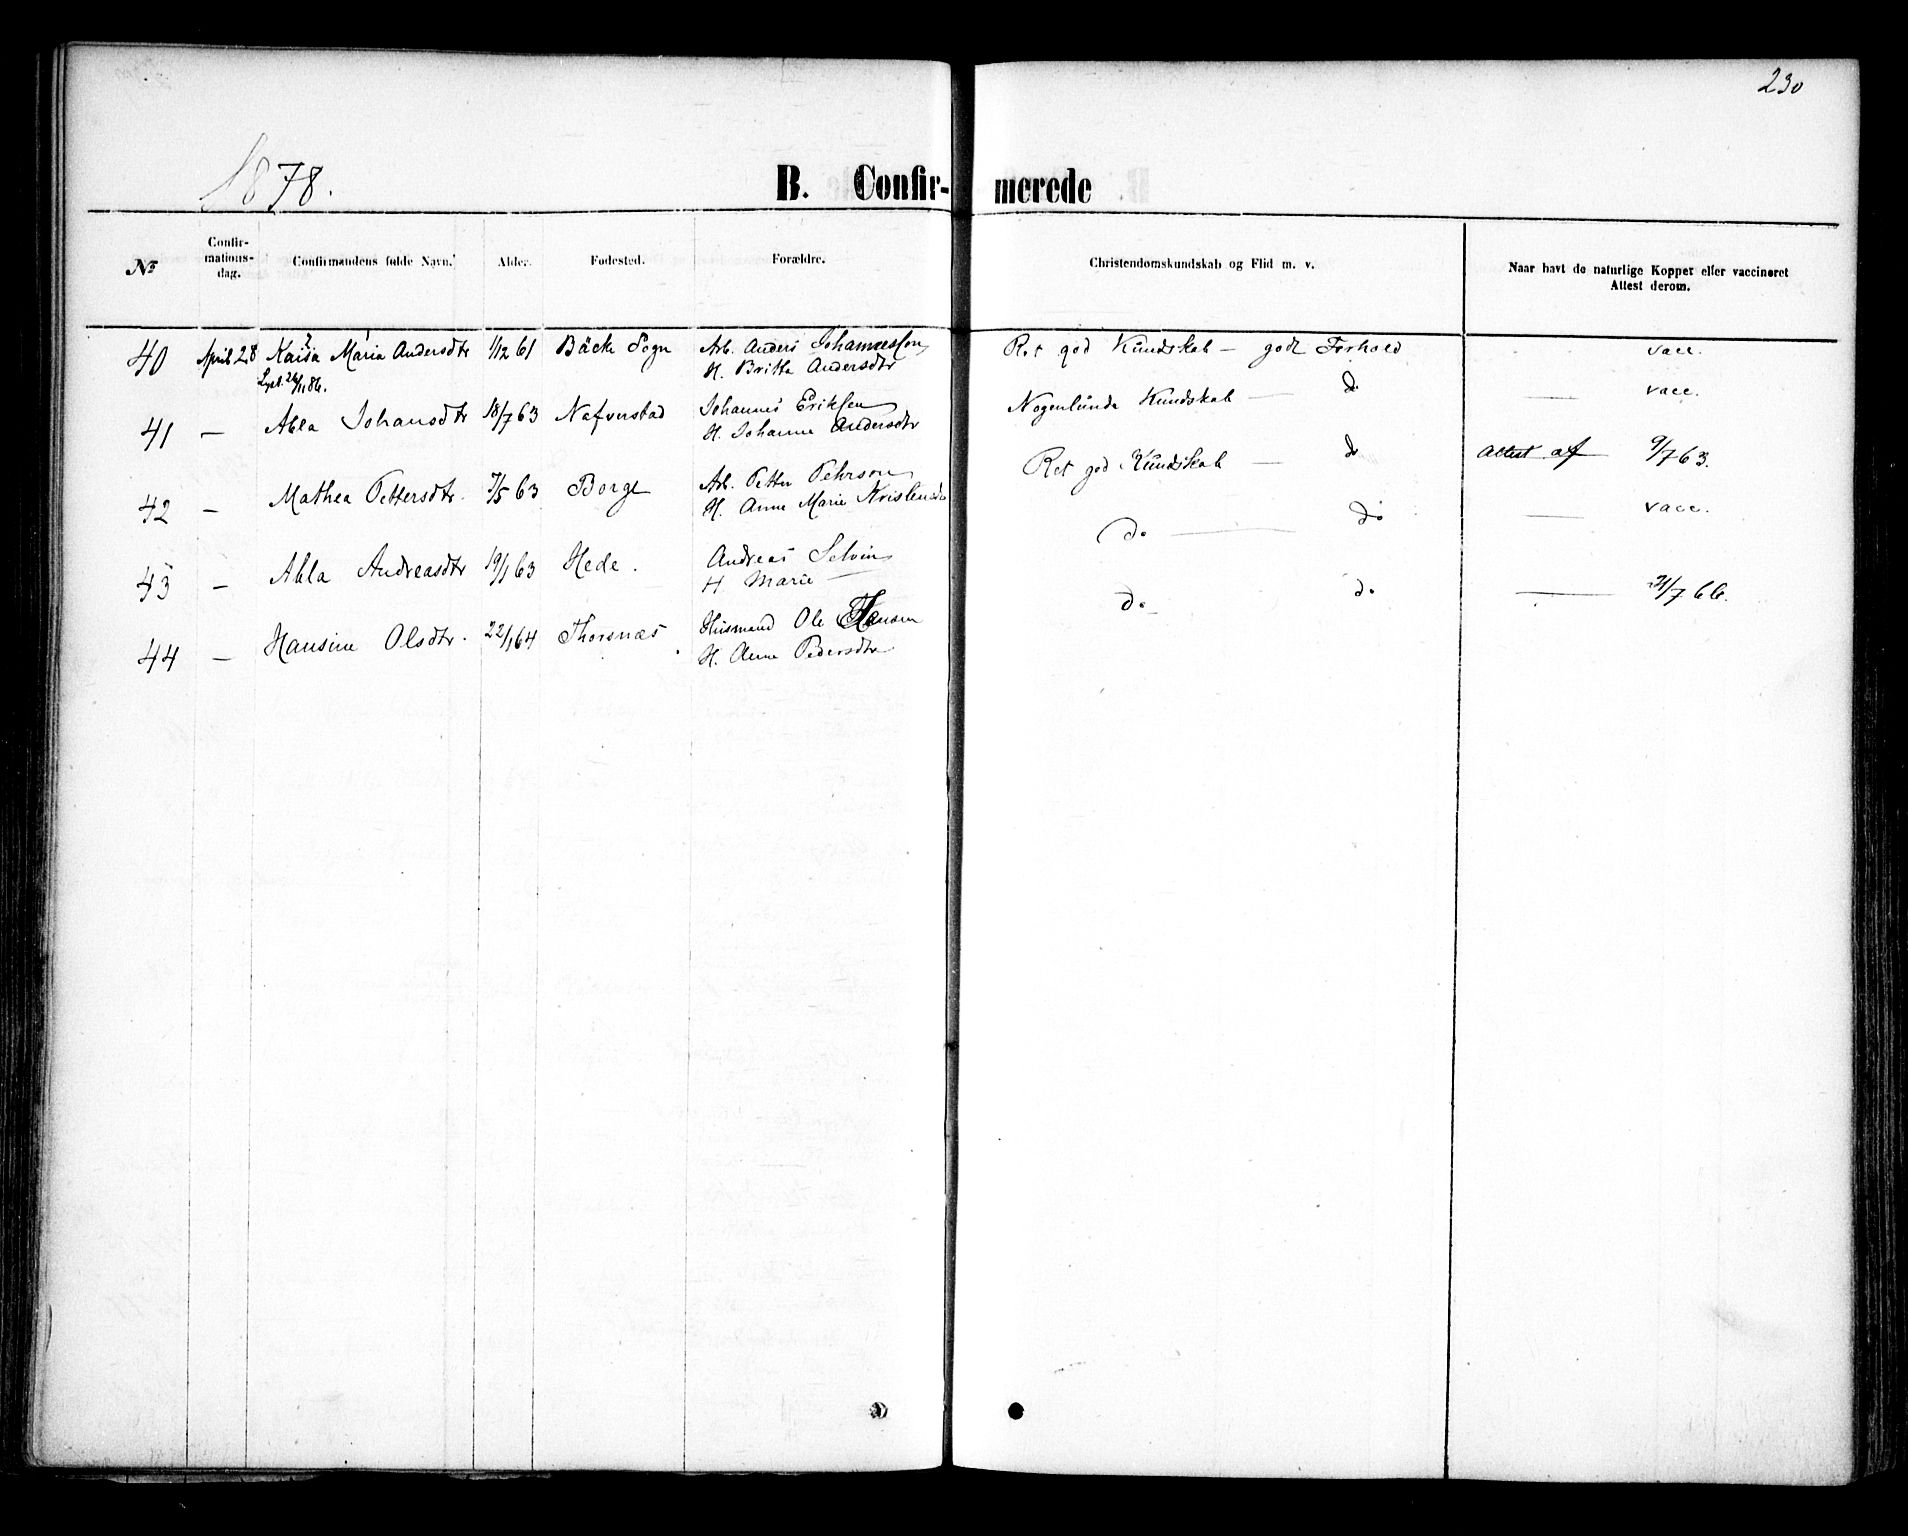 230
1878.
B. Confir- merede
No
Confir-
mations-
dag.
Confirmandens fulde Navn.
Alder.
Fødested.
Forældre.
Christendomskundskab og Flid m. v.
Naar havt de naturlige Kopper eller vaccineret
Attest derom.
40 April 28 Kaisa Maria Andersdtr 1/12 61 Bäcke Sogn Arb. Anders Johannessen Ret god Kundskab — godt Forhold vacc.
Lyst. /11 86. H. Britta Andersdtr
41 — Abla Johansdtr 18/7 63 Nafverstad Johannes Eriksen Nogenlunde Kundskab — do — vacc.
H. Johanne Andersdtr
42 — Mathea Pettersdtr. 7/5 63 Borge Arb. Petter Pehrson Ret god Kundskab — do Attest af 9/7 63.
H. Anne Marie
43 — Abla Andreasdtr 19/1 63 Hede. Andreas Selvin do — do — vacc.
H Marie —
44 — Hansine Olsdtr. 22/1 64 Thorsnæs. Husmand Ole Hansen do do — 21/7 66.
H. Anne Pedersdtr